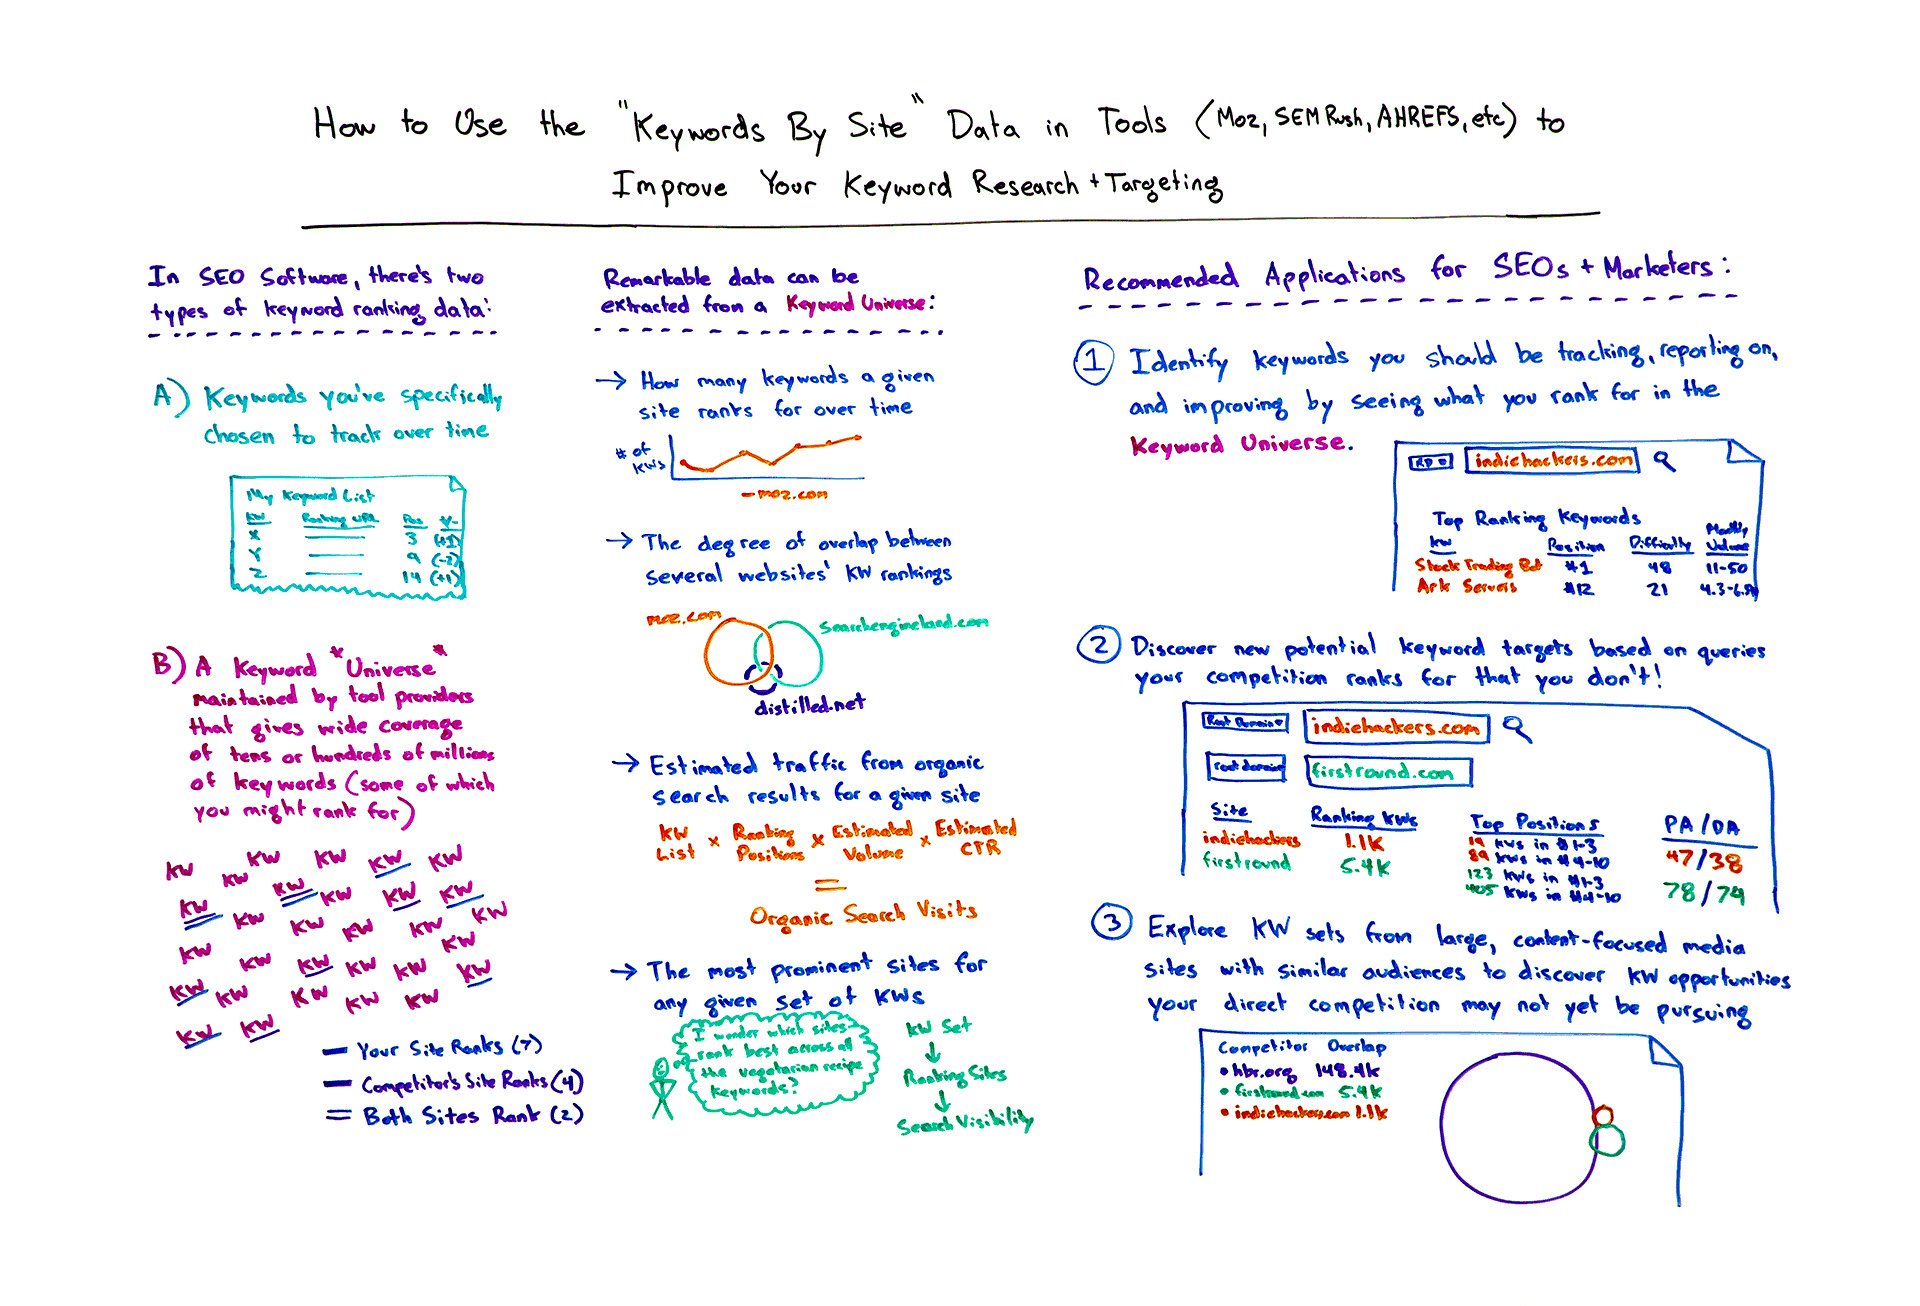 How to Use the "Keywords By Site" Data in Tools (Moz, SEMRush, AHREFS, etc) to
Improve Your Keyword Research + Targeting
In SEO Software, there's two
types of keyword ranking data:
A) Keywords you've specifically
chosen to track over time
My Keyword List
KW Ranking URL Pos
X 3 (+1)
Y 9 (-2)
Z 14 (+1)
B) A Keyword "Universe"
maintained by tool providers
that gives wide coverage
of tens or hundreds of millions
of keywords (some of which
you might rank for)
KW KW KW KW KW
KW KW KW KW KW
KW KW KW KW KW KW
KW KW KW KW KW KW KW
KW KW KW KW KW
KW KW
Your Site Ranks (7)
Competitor's Site Ranks (4)
Both Sites Rank (2)
Remarkable data can be
extracted from a Keyword Universe:
→ How many keywords a given
site ranks for over time
# of
KWs
- moz.com
→ The degree of overlap between
several websites' KW rankings
moz.com
searchengineland.com
distilled.net
→ Estimated traffic from organic
search results for a given site
KW List × Ranking Positions × Estimated Volume × Estimated CTR
=
Organic Search Visits
→ The most prominent sites for
any given set of KWs
I wonder which sites
rank best across all
the vegetarian recipe
keywords?
KW Set
↓
Ranking Sites
↓
Search Visibility
Recommended Applications for SEOs + Marketers:
1 Identify keywords you should be tracking, reporting on,
and improving by seeing what you rank for in the
Keyword Universe.
RD indiehackers.com
Top Ranking Keywords
KW Position Difficulty Monthly Volume
Stock Trading Bot #1 48 11-50
Ark Servers #12 21
2 Discover new potential keyword targets based on queries
your competition ranks for that you don't!
Root Domain indiehackers.com
root domain firstround.com
Site Ranking KWs Top Positions PA/DA
indiehackers 1.1K 19 KWs in #1-3 47/38
89 KWs in #4-10
firstround 5.4K 123 KWs in #1-3 78/74
405 KWs in #4-10
3 Explore KW sets from large, content-focused media
sites with similar audiences to discover KW opportunities
your direct competition may not yet be pursuing
Competitor Overlap
• hbr.org 148.4K
• firstround.com 5.4K
• indiehackers.com 1.1K